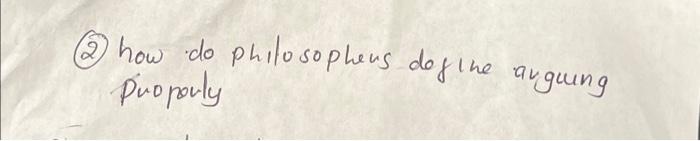 ② how do philosophers define arguing
properly